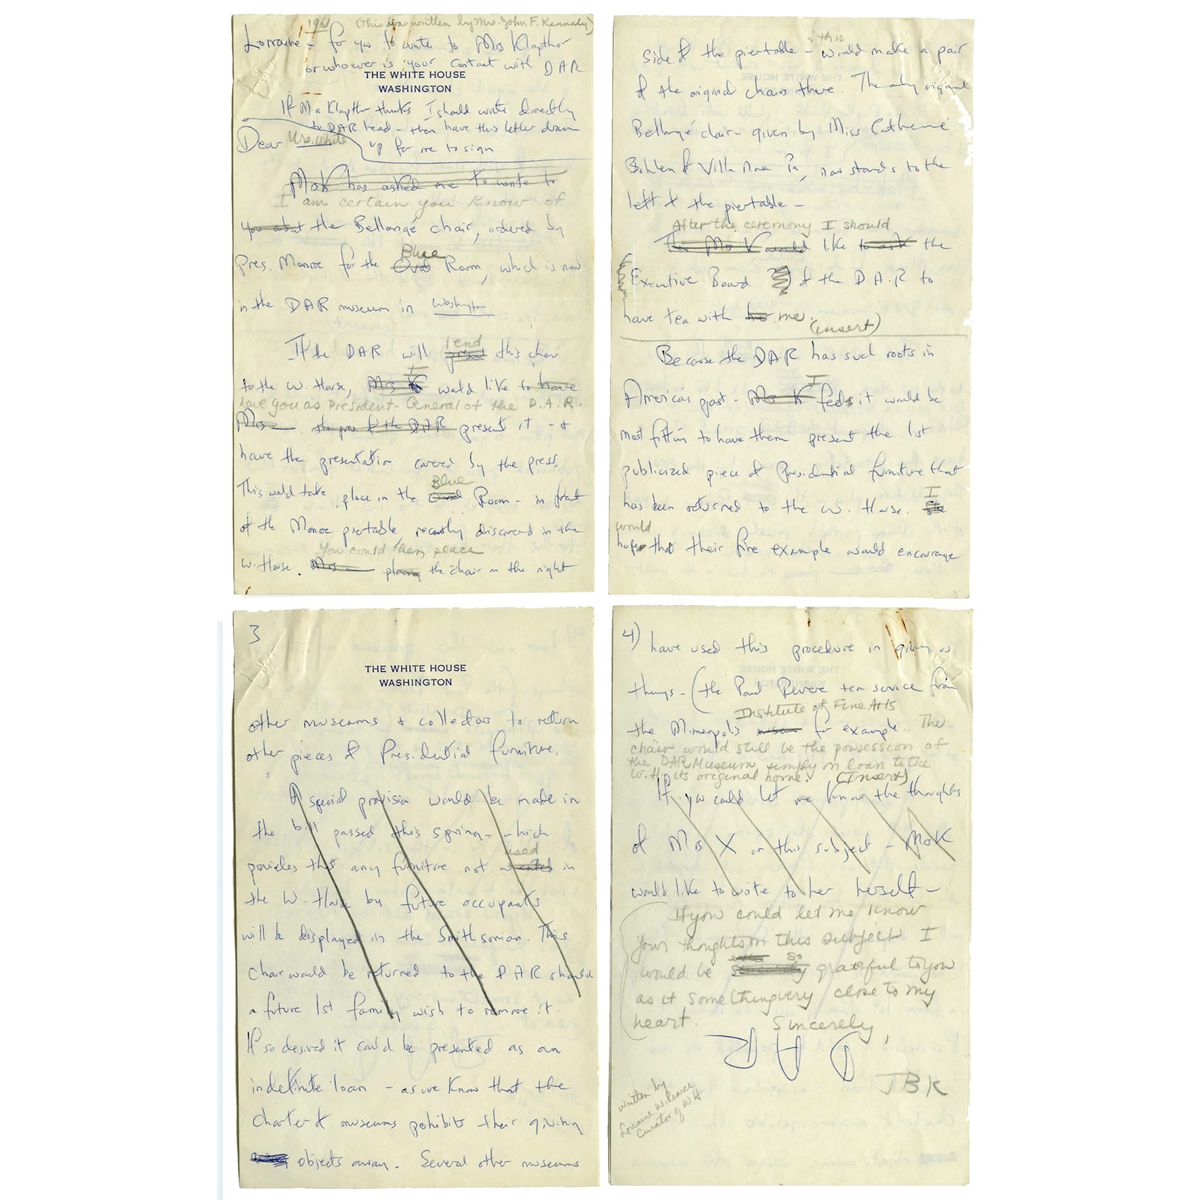 1961 (This was written by Mrs. John F. Kennedy)
Lorraine - for you to write to Mrs Klapthor
or whoever is your contact with DAR
THE WHITE HOUSE
WASHINGTON
If Mrs Klapthor thinks I should write directly
to DAR head - then have this letter drawn
up for me to sign
Dear Mrs. White
Mrs K has asked me to write to
I am certain you know of
you about the Bellange chair, ordered by
Blue
Pres. Monroe for the Oval Room, which is now
in the DAR museum in Washington
lend
If the DAR will present this chair
I
to the W. House, Mrs K would like to have
have you as President-General of the D.A.R.
Mrs the pres of the DAR present it - &
have the presentation covered by the press.
Blue
This would take place in the Oval Room - in front
of the Monroe piertable recently discovered in the
You could then place
W. House. Mrs placing the chair on the right
this
side of the piertable - would make a pair
of the original chairs there. The only original
Bellangé chair given by Miss Catherine
Bohlen of Villa Nova Pa, now stands to the
left of the piertable -
After the ceremony I should
Then Mrs K would like to ask the
Executive Board of the D.A.R to
have tea with her me.
(insert)
Because the DAR has such roots in
I
Americas past - Mrs K feels it would be
most fitting to have them present the 1st
publicized piece of Presidential furniture that
I
has been returned to the W. House. She
would
hopes that their fine example would encourage
3
THE WHITE HOUSE
WASHINGTON
other museums & collectors to return
other pieces of Presidential furniture.
A special provision would be made in
the bill passed this spring - which
used
provides that any furniture not wanted in
the W. House by future occupants
will be displayed in the Smithsonian. This
chair would be returned to the DAR should
a future 1st family wish to remove it.
If so desired it could be presented as an
indefinite loan - as we know that the
charter of museums prohibits their giving
objects away. Several other museums
4) have used this procedure in giving us
things - (the Paul Revere tea service from
Institute of Fine Arts
the Minneapolis museum for example. The
chair would still be the possession of
the DAR Museum, simply on loan to the
W.H. its original home. (Insert)
If you could let me know the thoughts
of Mrs X on this subject - Mrs K
would like to write to her herself -
If you could let me know
your thoughts on this subject I
would be so grateful to you
as it something very close to my
heart. Sincerely,
DAR
JBK
written by
Lorraine W. Pearce
Curator of WH